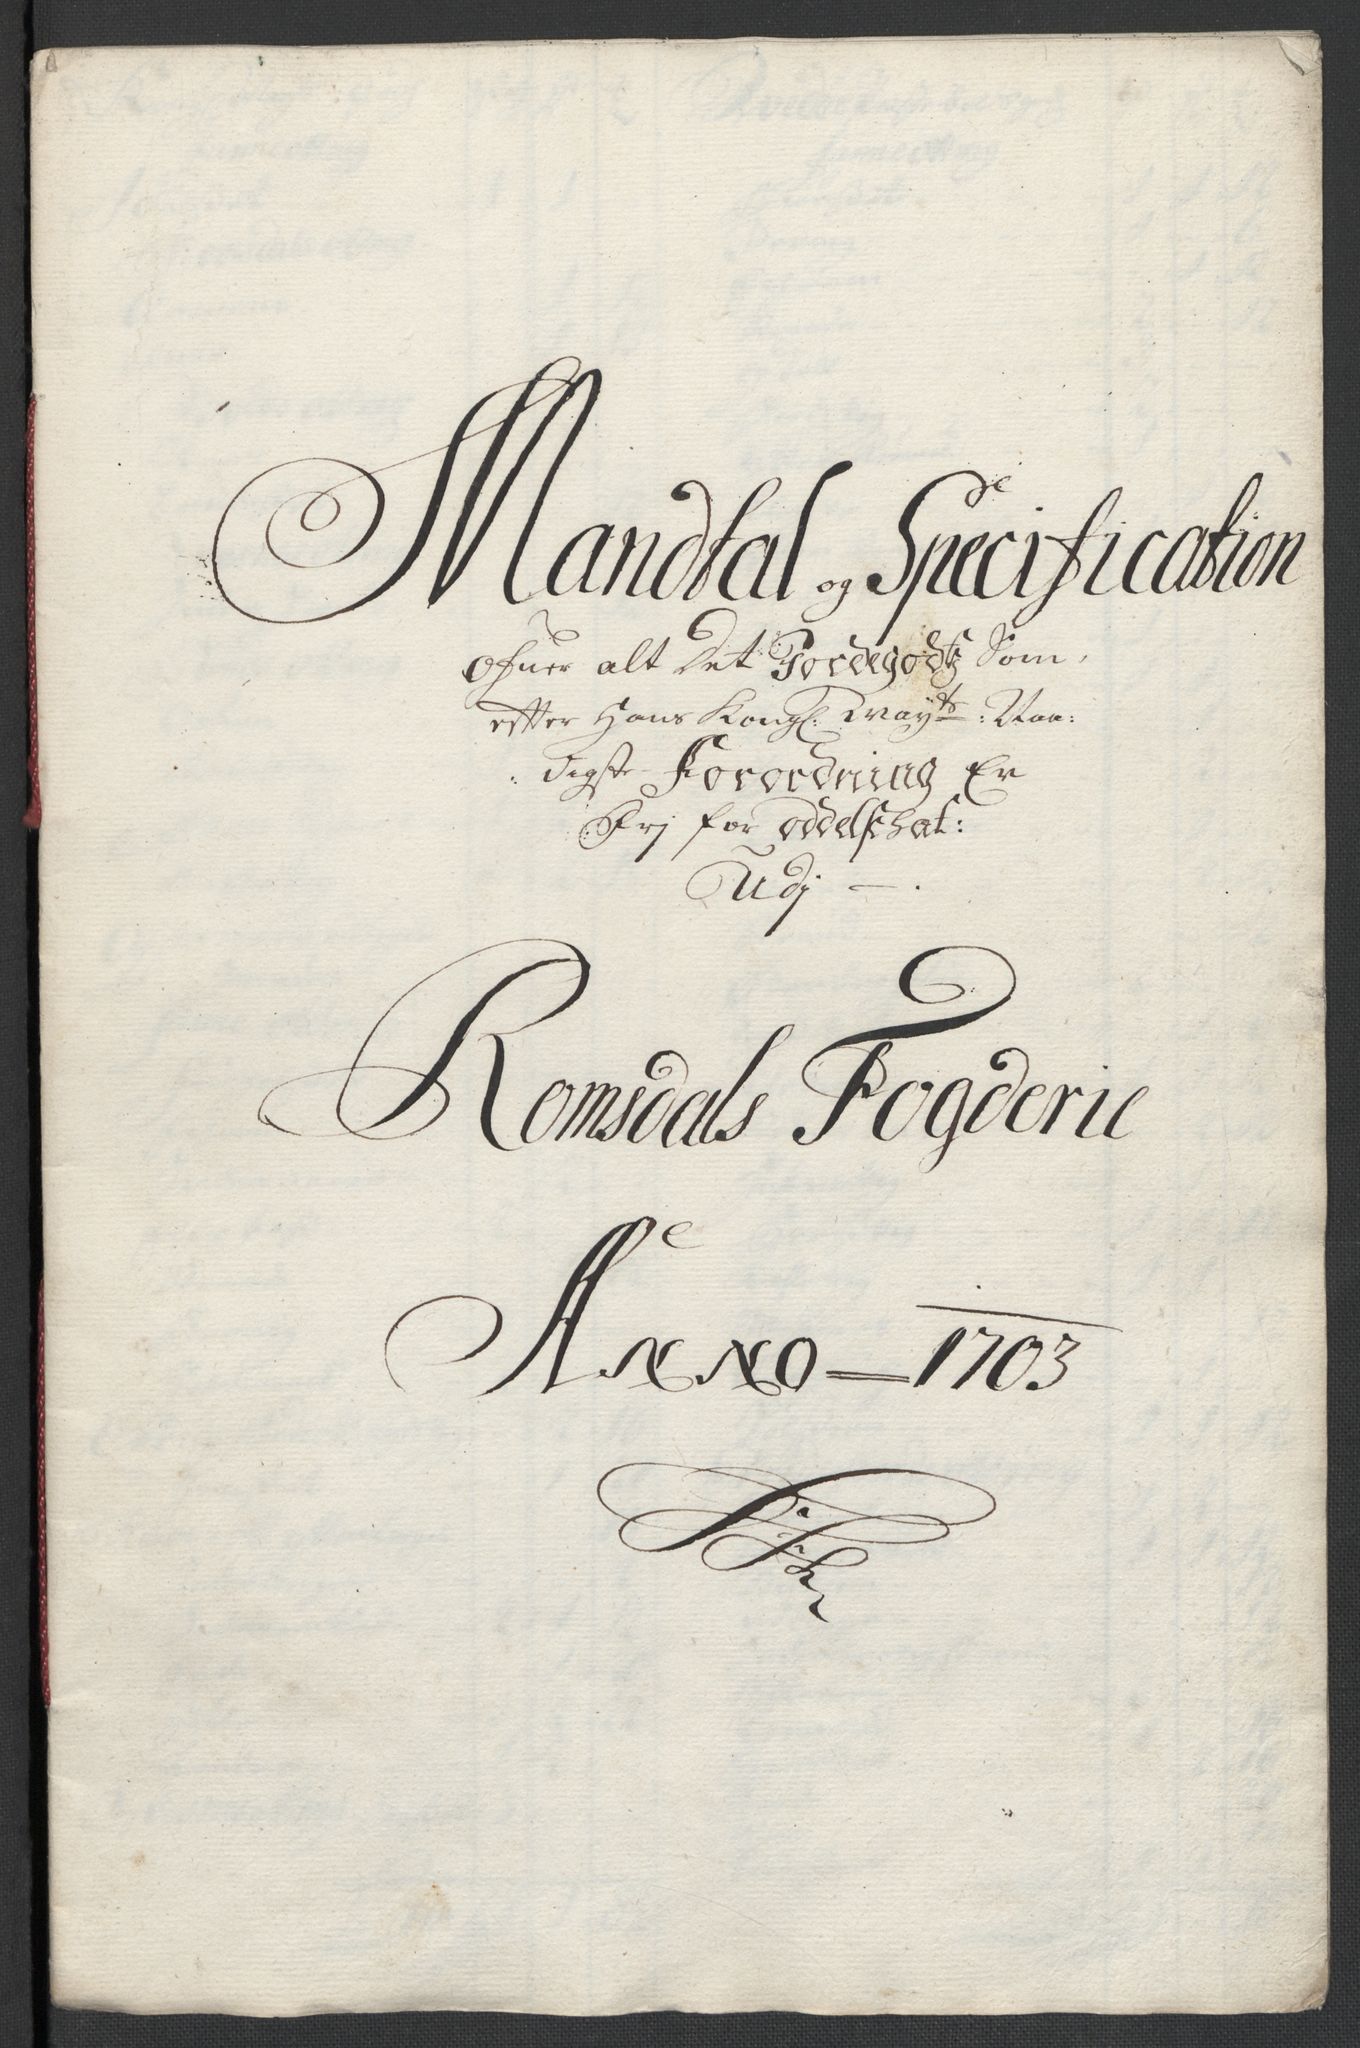 Mandtal og Specification
Ofuer alt det Jordegodtz Som
effter Hans Kongl: Mayts: Naa:
digste Forordning Er
Frj for oddelschat:
Udj —.
Romsdals Fogderie
Anno — 1703